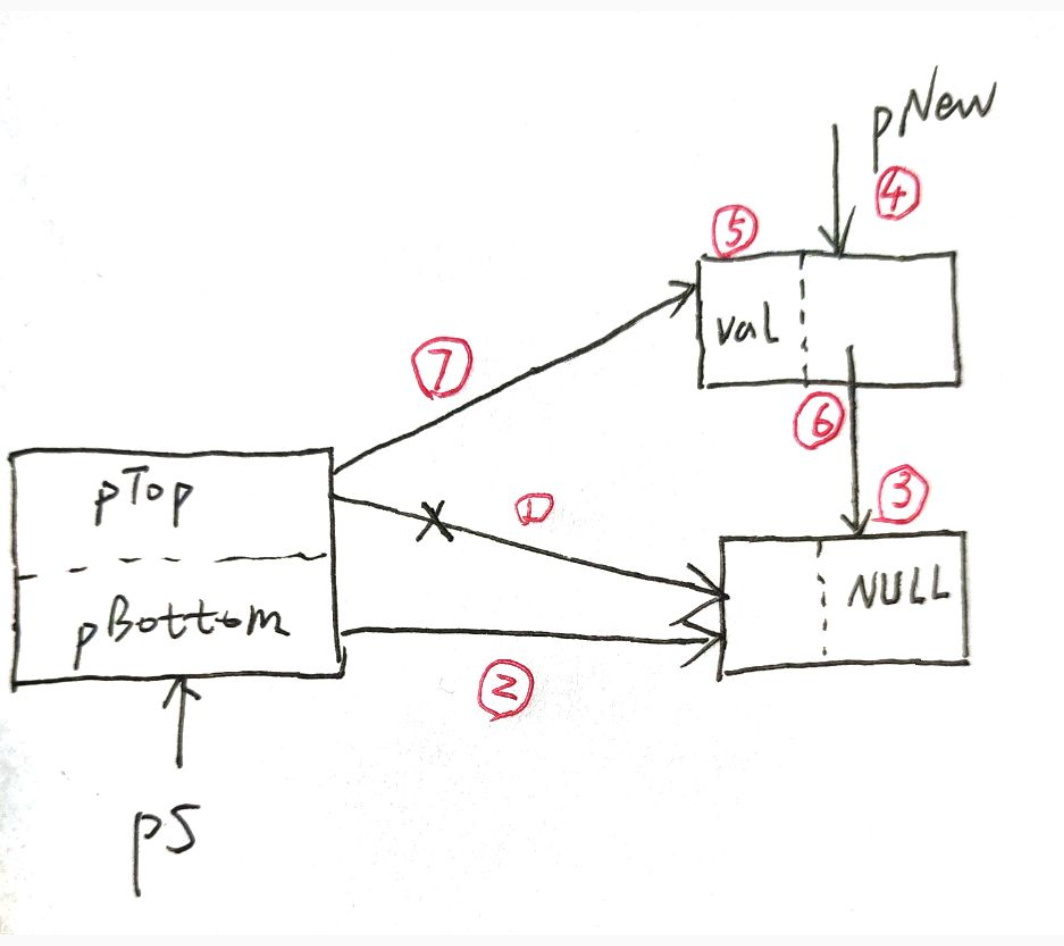 pNew
④
⑤
val
⑦
⑥
③
pTop
①
NULL
pBottom
②
pS